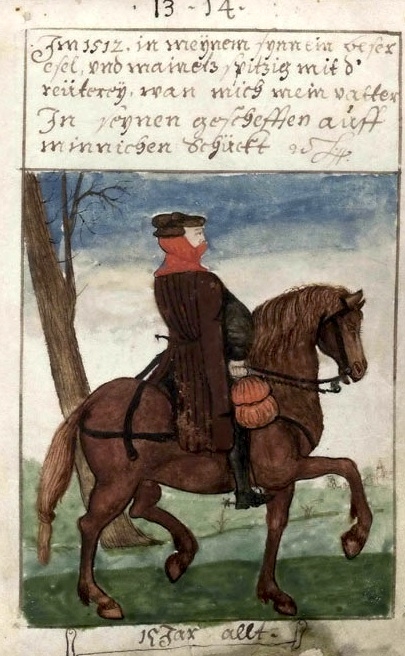 13 - 14.
Im 1512. in meÿnem sÿnn ein beser
esel, vnd mainetz spitzig mit d'
reüterey, wan mich mein vatter
In seÿnen geschefften aüff
minnichen Schückt
15 Jar allt.